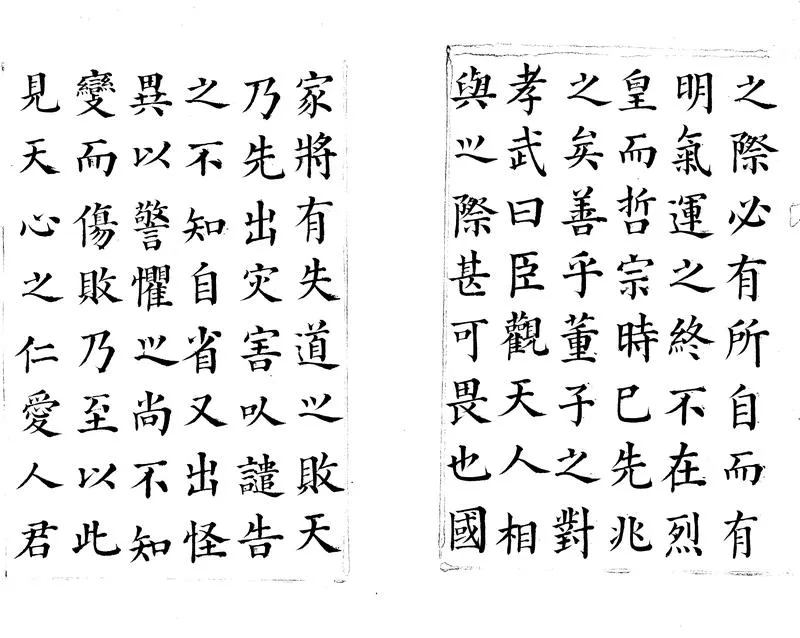 之際必有所自而有
明氣運之終不在烈
皇而哲宗時已先兆
之矣善乎董子之對
孝武曰臣觀天人相
與之際甚可畏也國
家將有失道之敗天
乃先出灾害以譴告
之不知自省又出怪
異以警懼之尚不知
變而傷敗乃至以此
見天心之仁愛人君